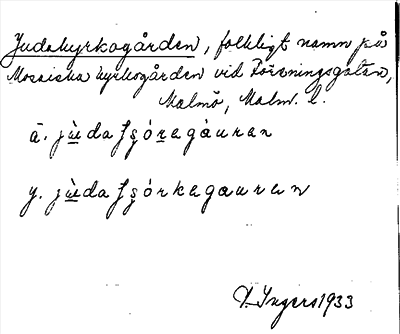 Judakyrkogården, folkligt namn på
Mosaiska kyrkogården vid Föreningsgatan,
Malmö, Malm. l.
ä. jùdaʃʂóregàuran
y. jùdaʃʂórkegauran
I. Ingers 1933